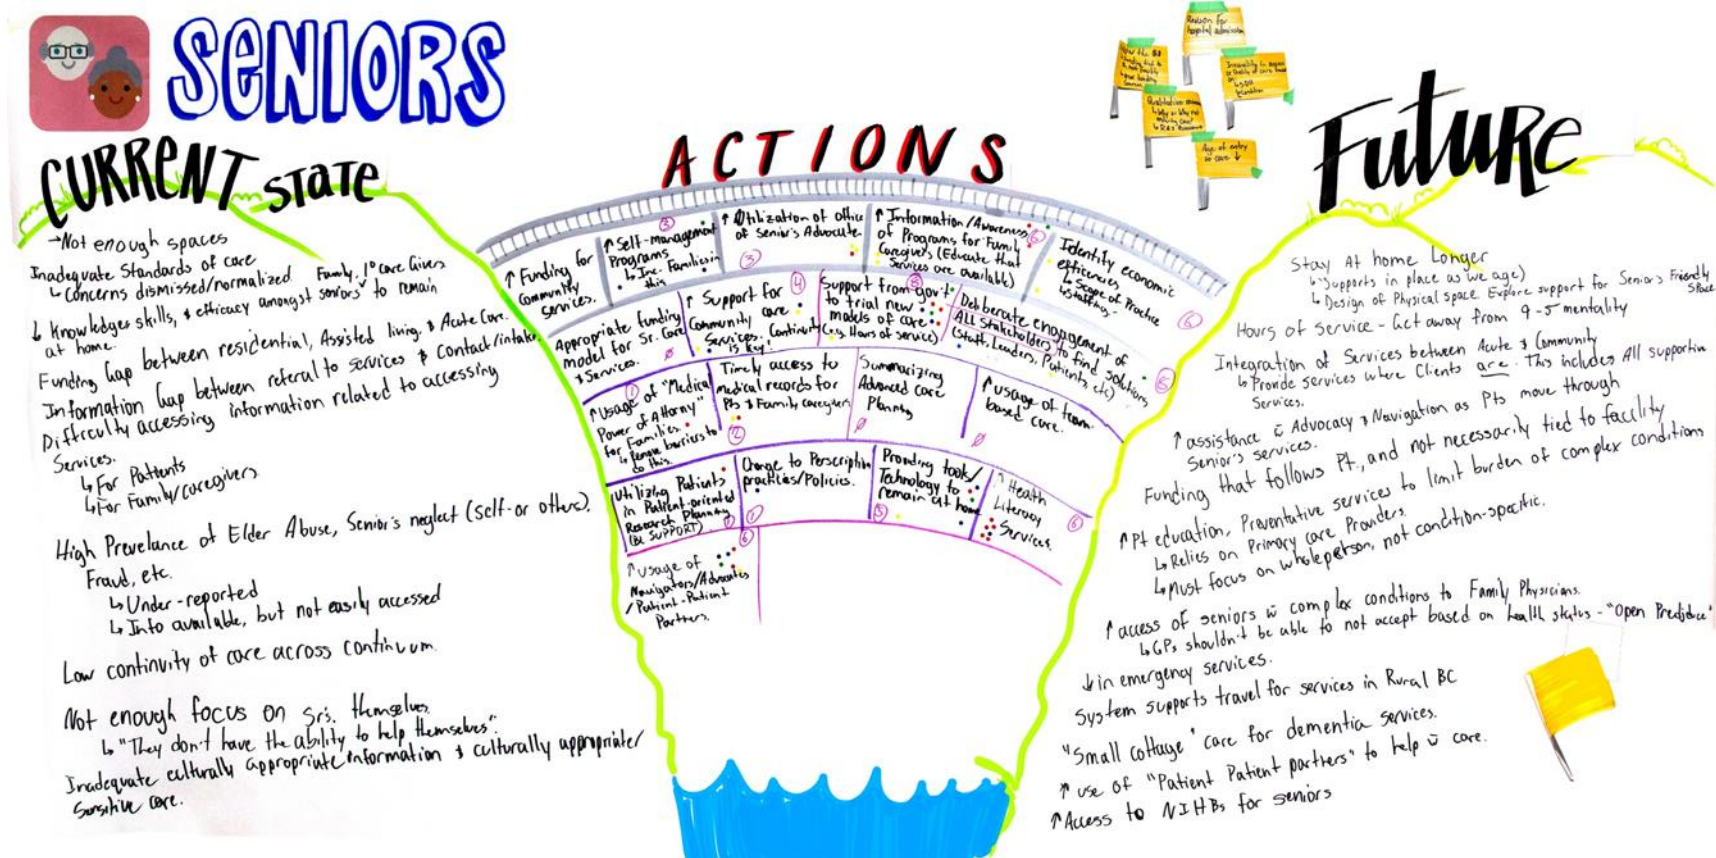 SENIORS
CURRENT STATE
→Not enough spaces
Inadequate Standards of care
↳ Concerns dismissed/normalized.
Family, 1° care Givers
↓ Knowledges skills, & efficacy amongst seniors to remain
at home.
Funding Gap between residential, Assisted living, & Acute Care.
Information Gap between referal to services & Contact/intake.
Difficulty accessing information related to accessing
Services.
↳ For Patients
↳ For Family/caregivers
High Prevelance of Elder Abuse, Senior's neglect (self-or others),
Fraud, etc.
↳ Under-reported
↳ Info available, but not easily accessed
Low continuity of care across continuum.
Not enough focus on Sr's. themselves
↳ "They don't have the ability to help themselves".
Inadequate culturally appropriate information & culturally appropriate/
Sensitive care.
ACTIONS
↑ Funding for
Community
services.
3
↑ Self-management
Programs
↳ Inc. Families in
this
↑ Utilization of office
of Senior's Advocate
3
↑ Information/Awareness
of Programs for Family
Caregivers (Educate that
Services are available)
6
Identity economic
efficiencies
↳ Scope of Practice
↳ staffing.
6
Appropriate funding
model for Sr. Care
& Services.
0
4
↑ Support for
Community care
Services. Continuity
is key!
8
Support from gov't
to trial new
models of care
(e.g. Hours of service)
Deliberate engagement of
ALL Stakeholders to find solutions
(Staff, Leaders, Patients, etc)
5
1
↑ Usage of "Medical
Power of Attorny"
for Families.
↳ Remove barriers to
do this.
Timely access to
medical records for
Pts & Family caregivers
2
Summarizing
Advanced care
Planning
0
↑ usage of team
based care.
0
Utilizing Patients
in Patient-oriented
Research Planning
(BC SUPPORT)
1
Change to Perscription
practices/Policies.
1
Providing tools/
Technology to
remain at home
5
↑ Health
Literacy
Services.
6
6
↑ usage of
Navigators/Advocates
/Patient-Patient
Partners.
Reason for
hospital admission
Age of entry
to care ↓
Future
Stay At home Longer
↳ Supports in place as we age)
↳ Design of Physical space. Explore support for Senior's Friendly
Space
Hours of service - Get away from 9-5 mentality
Integration of Services between Acute & Community
↳ Provide services where Clients are. This includes All supportive
Services.
↑ assistance c̄ Advocacy & Navigation as Pts move through
Senior's services.
Funding that follows Pt., and not necessarily tied to facility
↑ Pt education, Preventative services to limit burden of complex conditions
↳ Relies on Primary care Providers.
↳ Must focus on whole person, not condition-specific.
↑ access of seniors c̄ complex conditions to Family Physicians.
↳ GPs shouldn't be able to not accept based on health status - "Open Predjduce"
↓ in emergency services.
System supports travel for services in Rural BC
"Small cottage" care for dementia services.
↑ use of "Patient Patient partners" to help c̄ care.
↑ Access to NIHBs for seniors